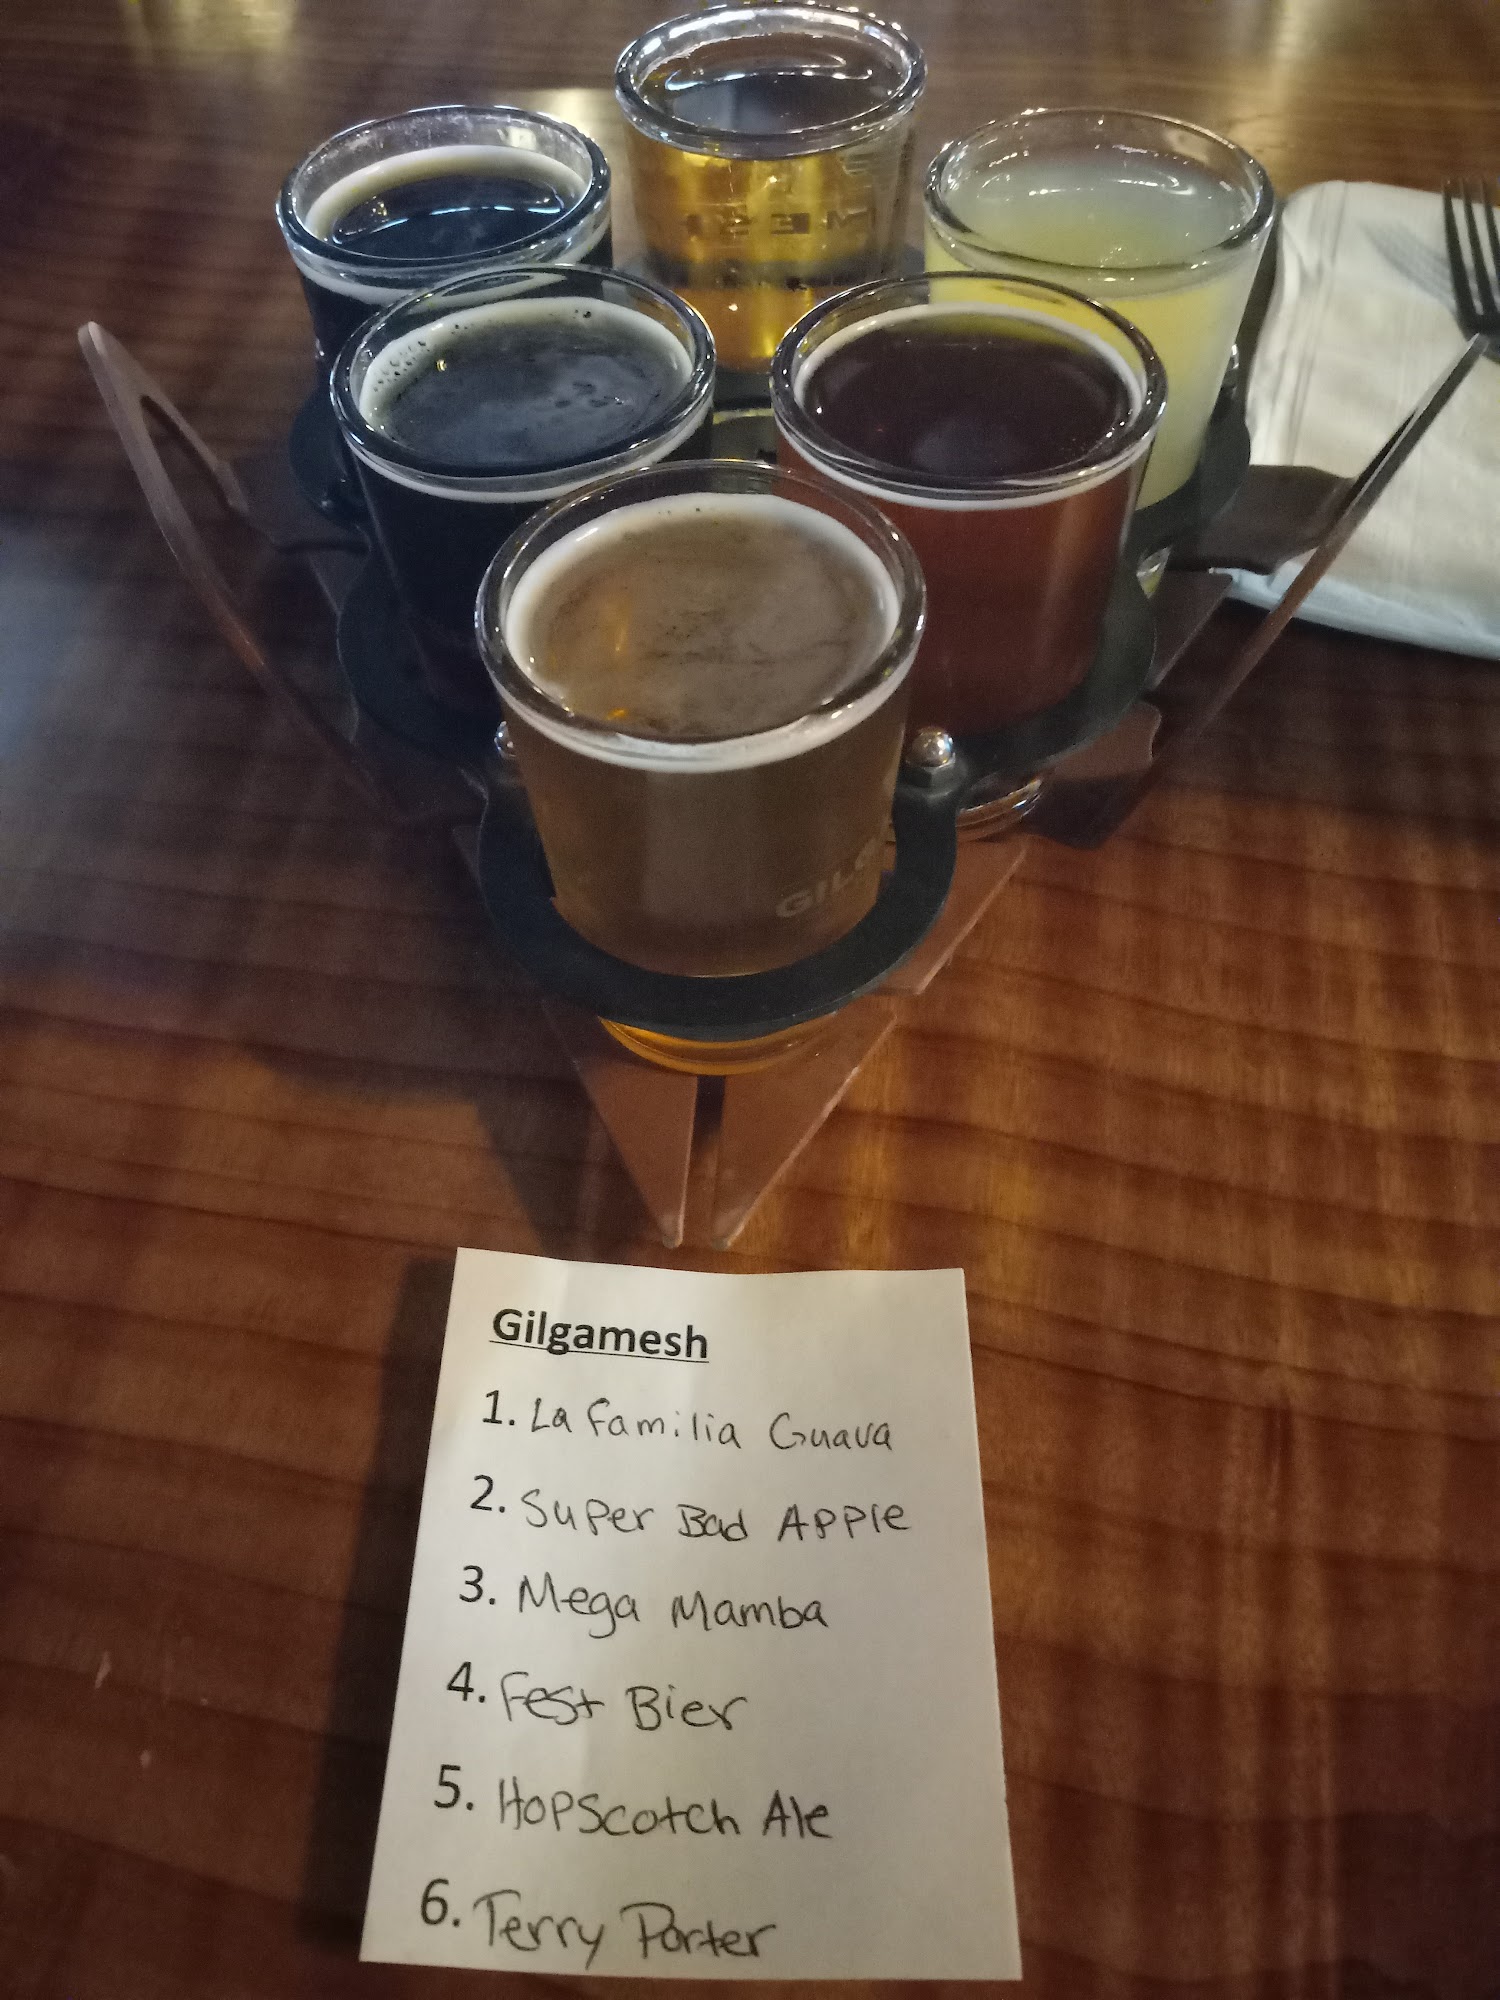 GILG
Gilgamesh
1. La Familia Guava
2. Super Bad Apple
3. Mega Mamba
4. Fest Bier
5. HopScotch Ale
6. Terry Porter